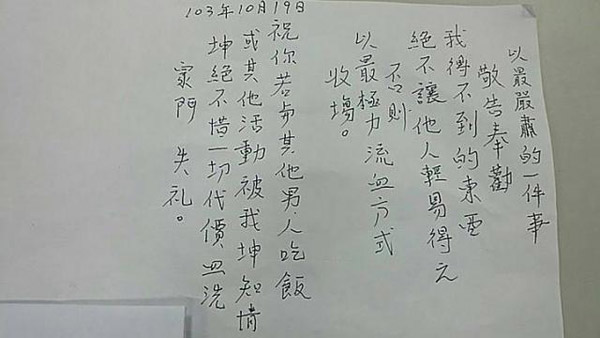 以最嚴肅的一件事
敬告奉勸
我得不到的東西
絕不讓他人輕易得之
否則
以最極力流血方式
收場。
祝你若与其他男人吃飯
或其他活動被我坤知情
坤絕不惜一切代價血洗
家門失礼。
103年10月19日